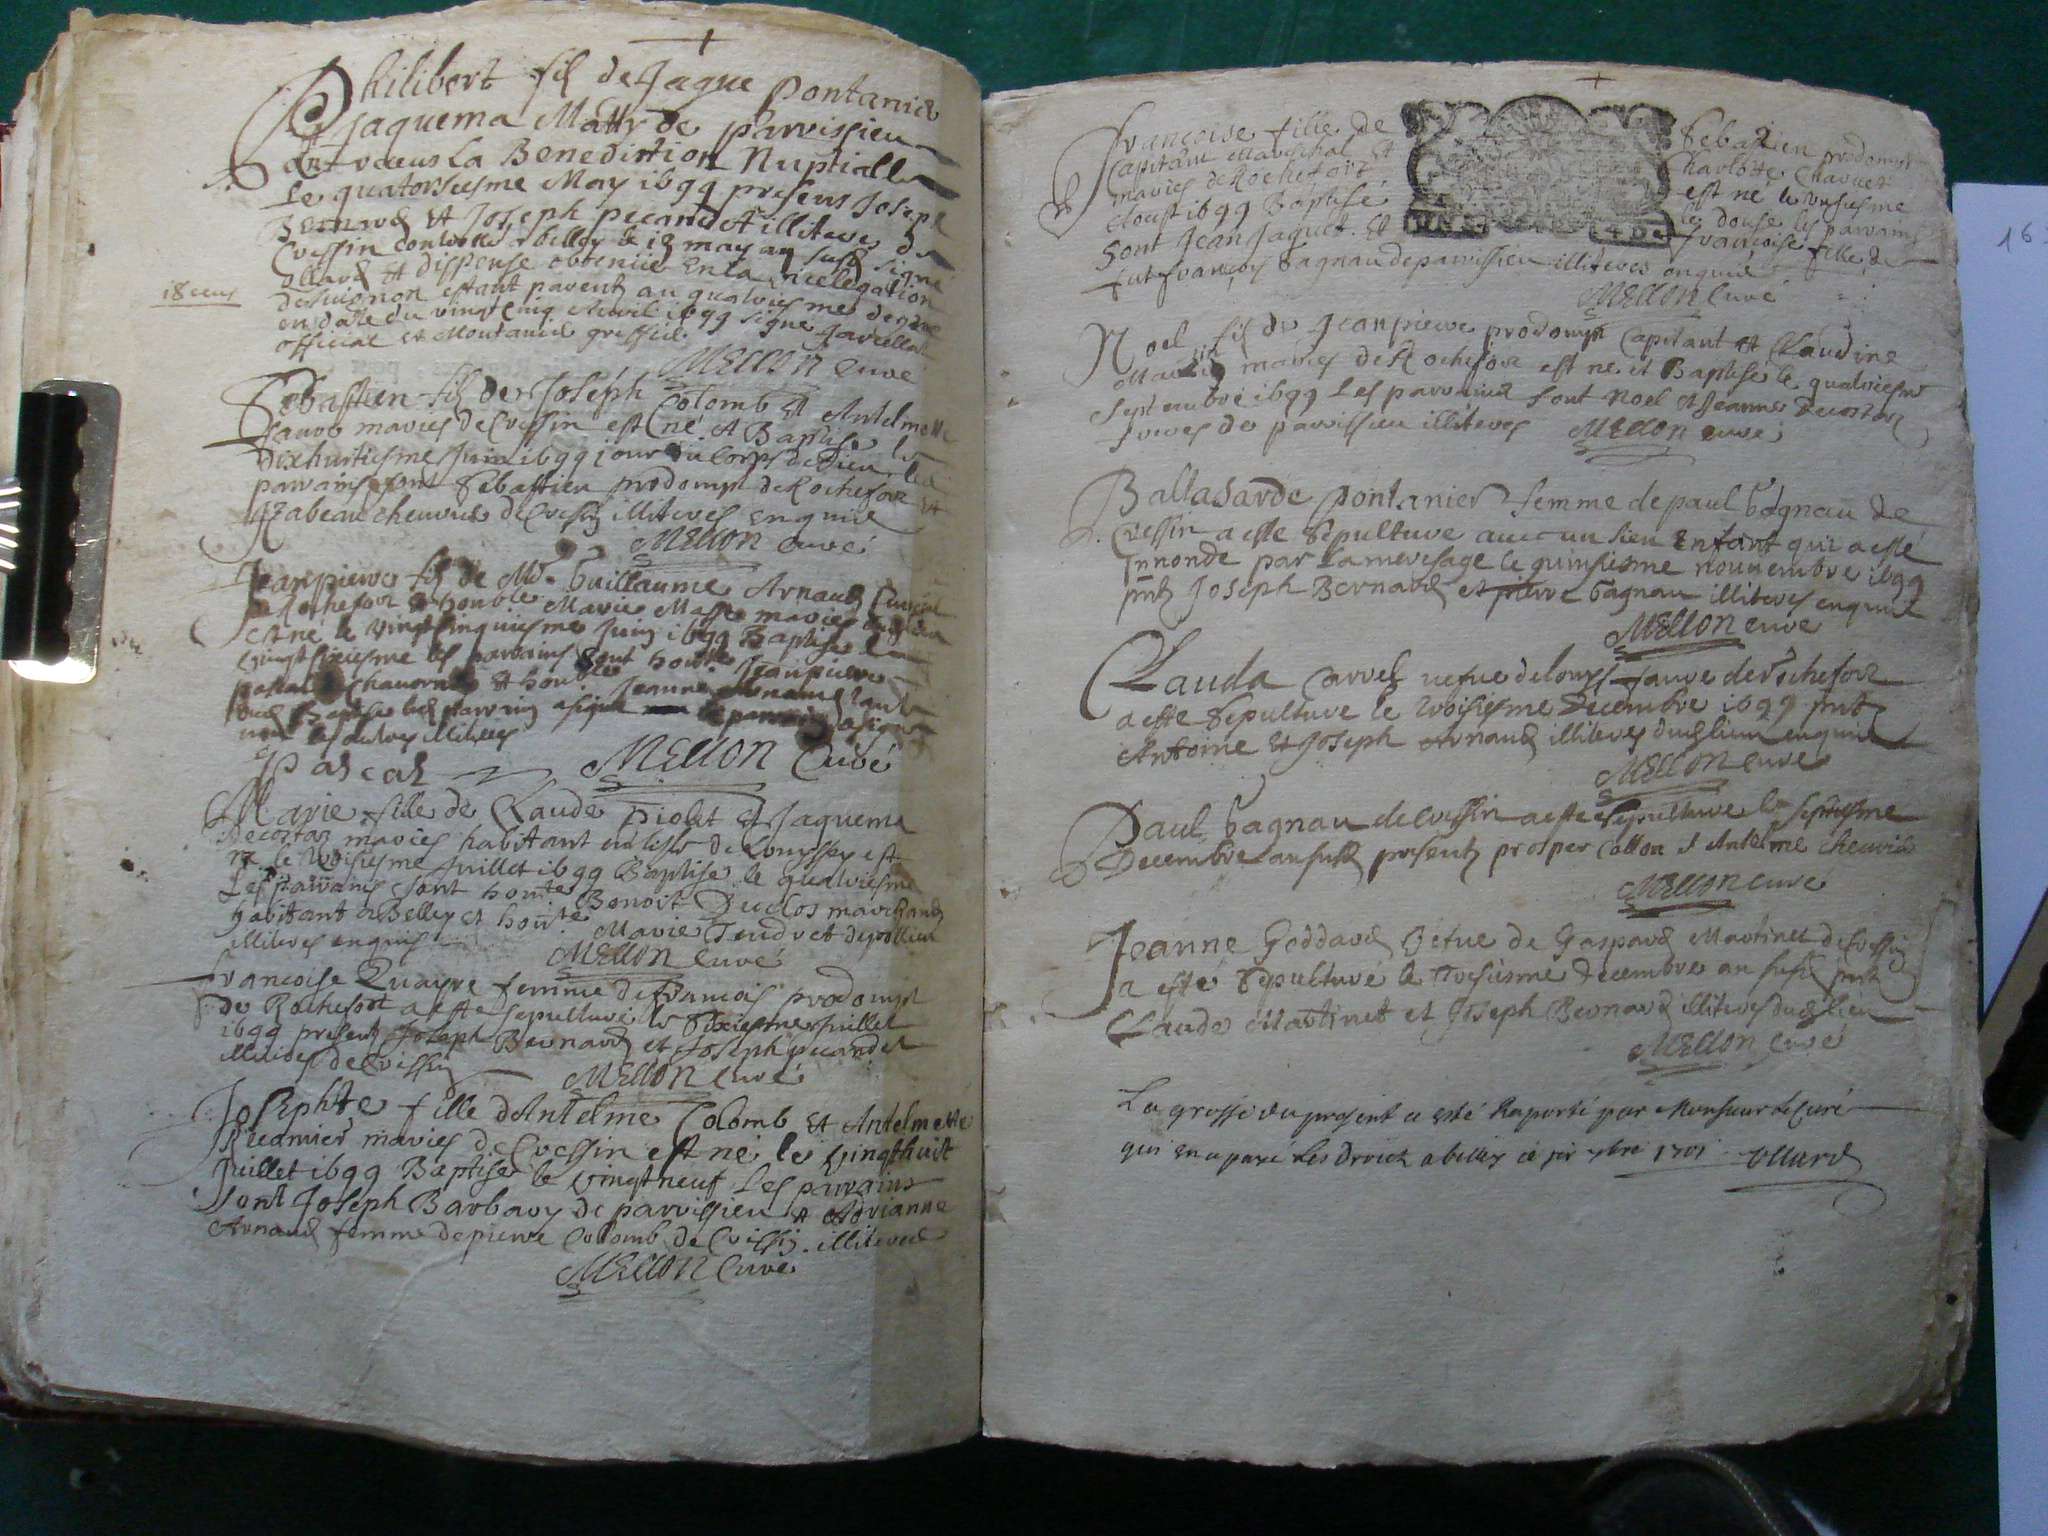 Philibert fils de Jaque Pontanier
Jaquema Matty de parvissieu
ont receus La Benediction Nuptialle
Le quatorsiesme May 1699 presens Joseph
Bernard et Joseph pecandet illiteres de
Cressin controllé a belley le 18 may an susd signé
ollard et dispense obtenüe En la vicelegation
estant parents au quatriesme degré
en date du vingt cinq Avril 1699 signe
official et Montanier greffier
Mellon Curé
Sebastien fils de Joseph Colomb et Antelmette
Favre mariés de Cressin est né et Baptisé le
dixhuitiesme Juin 1699 jour du Corps de Dieu les
parrains sont Sebastien prodomp de Rochefort et
Isabeau chevrier de Cressin illiteres enquis
Mellon curé
Jeanpierre fils de Mr Guillaume Arnaud
de Rochefort et honble Marie mariés
est né le vingtcinquiesme Juin 1699 Baptisé le
vingtsixiesme les parrains sont honble Jeanpierre
pascal et honble Jeanne Arnaud
le parrain a signé
non les autres illiteres
Pascal Mellon Curé
Marie fille de Claude piolet et Jaquema
Decostaz mariés habitant
né le troisiesme Juillet 1699 Baptisé le quatriesme
Les parrains sont honte Benoit Duclos marchand
habitant a Belley et honte Marie Tendret de pollieu
illiteres enquis
Mellon Curé
Francoise Quayre femme de francois prodomp
de Rochefort a esté sepulturé le Sixiesme Juillet
1699 presents Joseph Bernard et Joseph pecandet
illiteres de Cressin
Mellon Curé
Josephte fille d'Antelme Colomb et Antelmette
mariés de Cressin est né le vingthuit
Juillet 1699 Baptisé le vingtneuf Les parrains
sont Joseph Barbary de parvissieu et Adrianne
Arnaud femme de pierre Colomb de Cressin illiteres
Mellon Curé
Francoise fille de Sebastien prodomp
Capitan Mareschal et Charlotte Charvet
mariés de Rochefort est né le unsiesme
Aoust 1699 Baptisé le douse les parrains
sont Jean Jaquet et Francoise fille de
fut francois Gagnau de parvissieu illiteres enquis
Mellon Curé
Noel fils de Jeanpierre prodomp Capitant et Claudine
Martin mariés de Rochefort est né et Baptisé le quatriesme
Septembre 1699 Les parrains sont Noel et Jeanne Decostaz
freres de parvissieu illiteres Mellon curé
Baltasarde pontanier femme de paul Gagnau de
Cressin a esté sepulturé avec un sien Enfant qui a esté
Innondé par La mere sage le quinsiesme nouvembre 1699
pnts Joseph Bernard et pierre Gagnau illiteres enquis
Mellon curé
Clauda Carrel vefve de Louys favre de Rochefort
a esté sepulturé le troisiesme Decembre 1699 pnts
Antoine et Joseph Arnaud illiteres dud lieu enquis
Mellon Curé
Paul Gagnau de Cressin a esté sepulturé le septiesme
Decembre an susd presents prosper Collon et Antelme chevrier
Mellon curé
Jeanne Goddard Vefve de Gaspard Martinet de Cressin
a esté sepulturé le tresiesme Decembre an susd pnts
Claude Martinet et Joseph Bernard illiteres dud lieu
Mellon Curé
La grosse du present a esté Raporté par Monsieur Le Curé
qui en a payé Les Droicts a belley ce 7bre 1701 Ollard